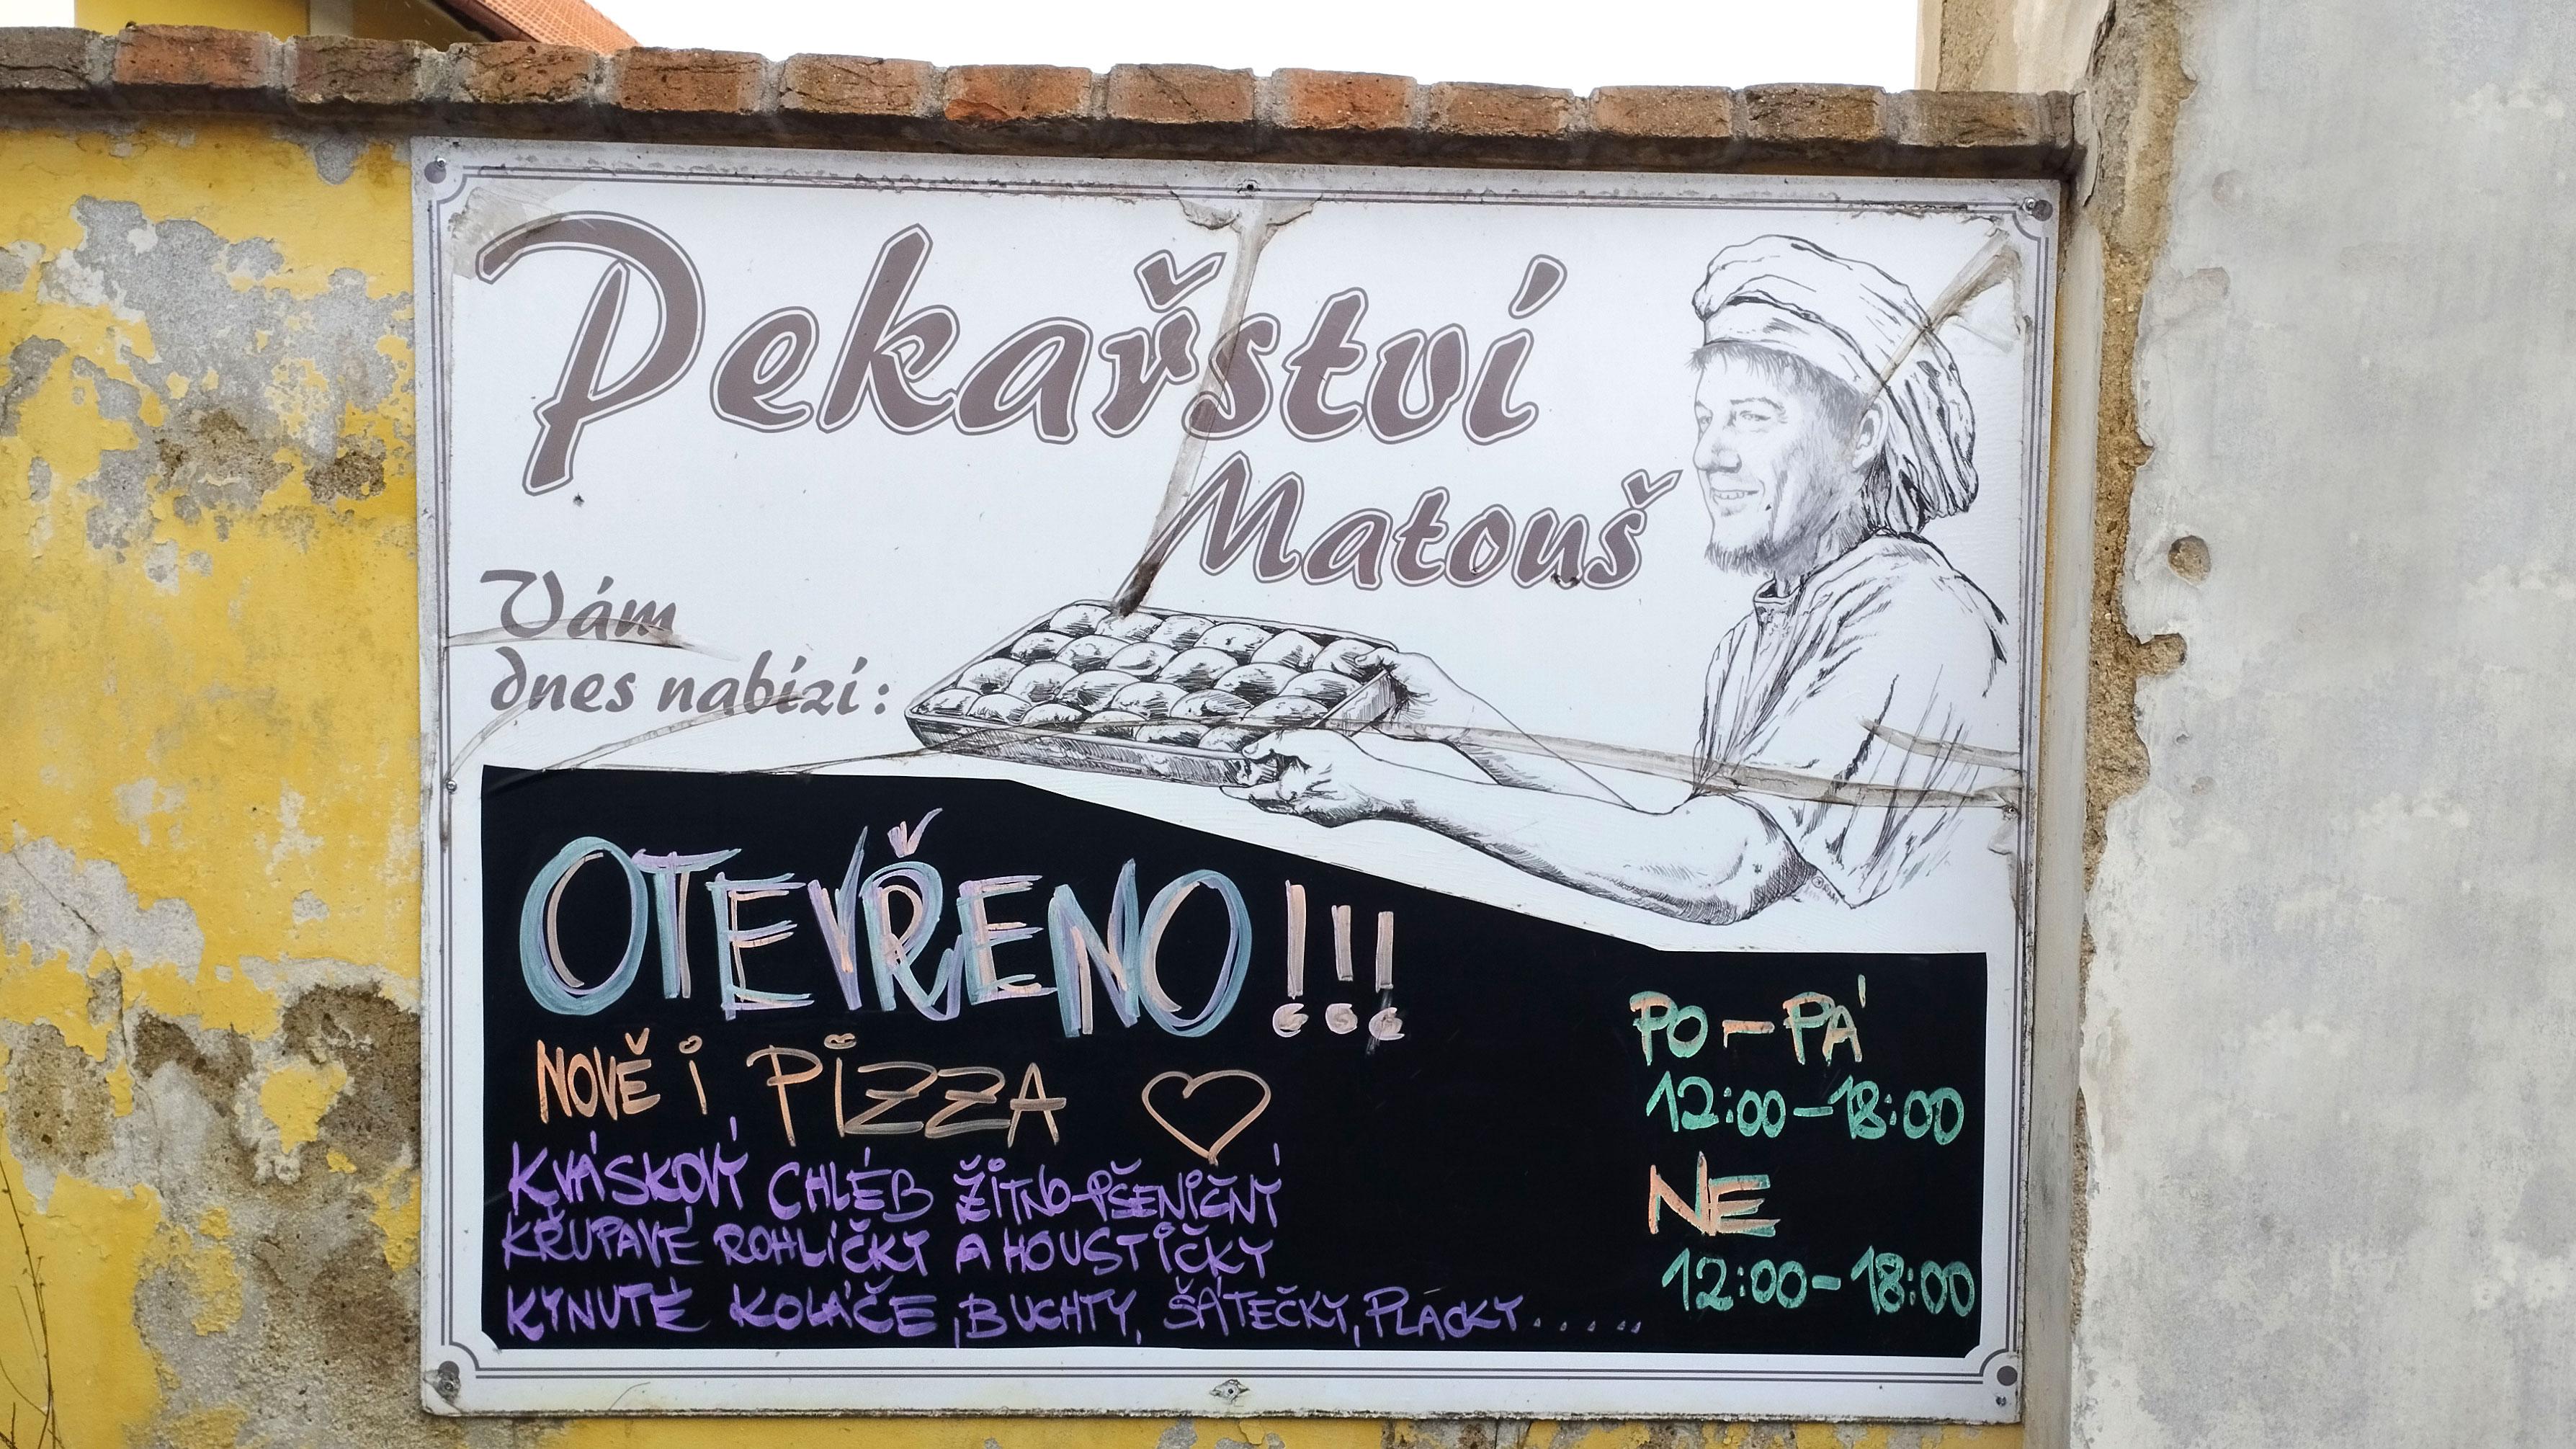 Pekařství
Matouš
Vám
dnes nabízí:
OTEVŘENO!!!
NOVĚ i PIZZA
KVÁSKOVÝ CHLÉB ŽITNO-PŠENIČNÝ
KŘUPAVÉ ROHLÍČKY A HOUSTIČKY
KYNUTÉ KOLÁČE, BUCHTY, ŠÁTEČKY, PLACKY.....
PO-PÁ
12:00-18:00
NE
12:00-18:00